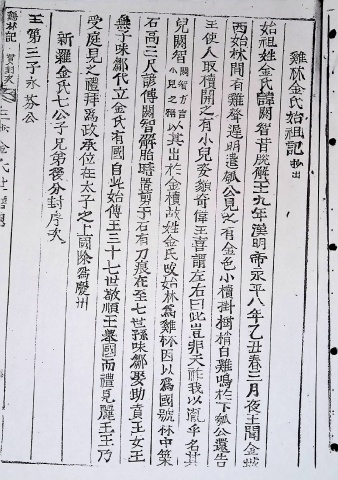 雞林金氏始祖記 抄出
始祖姓金氏諱閼智昔脫解王九年漢明帝永平八年乙丑春三月夜王聞金城
西始林間有雞聲遲明遣瓠公見之有金色小櫝掛樹梢白雞鳴於下瓠公還告
王使人取櫝開之有小兒姿貌奇偉王喜謂左右曰此豈非天祚我以胤乎名其
兒閼智 閼智方言小兒之稱 以其出於金櫝故姓金氏改始林爲雞林因以爲國號林中築
石高三尺諺傳閼智解胎時置剪于石有刀痕存至七世孫味鄒娶助賁王女王
無子味鄒代立金氏有國自此始傳王三十七世敬順王擧國而禮見麗王王乃
受庭見之禮拜爲政丞位在太子之上國除爲慶州
新羅金氏七公子兄弟後分封序次
王第三子永芬公